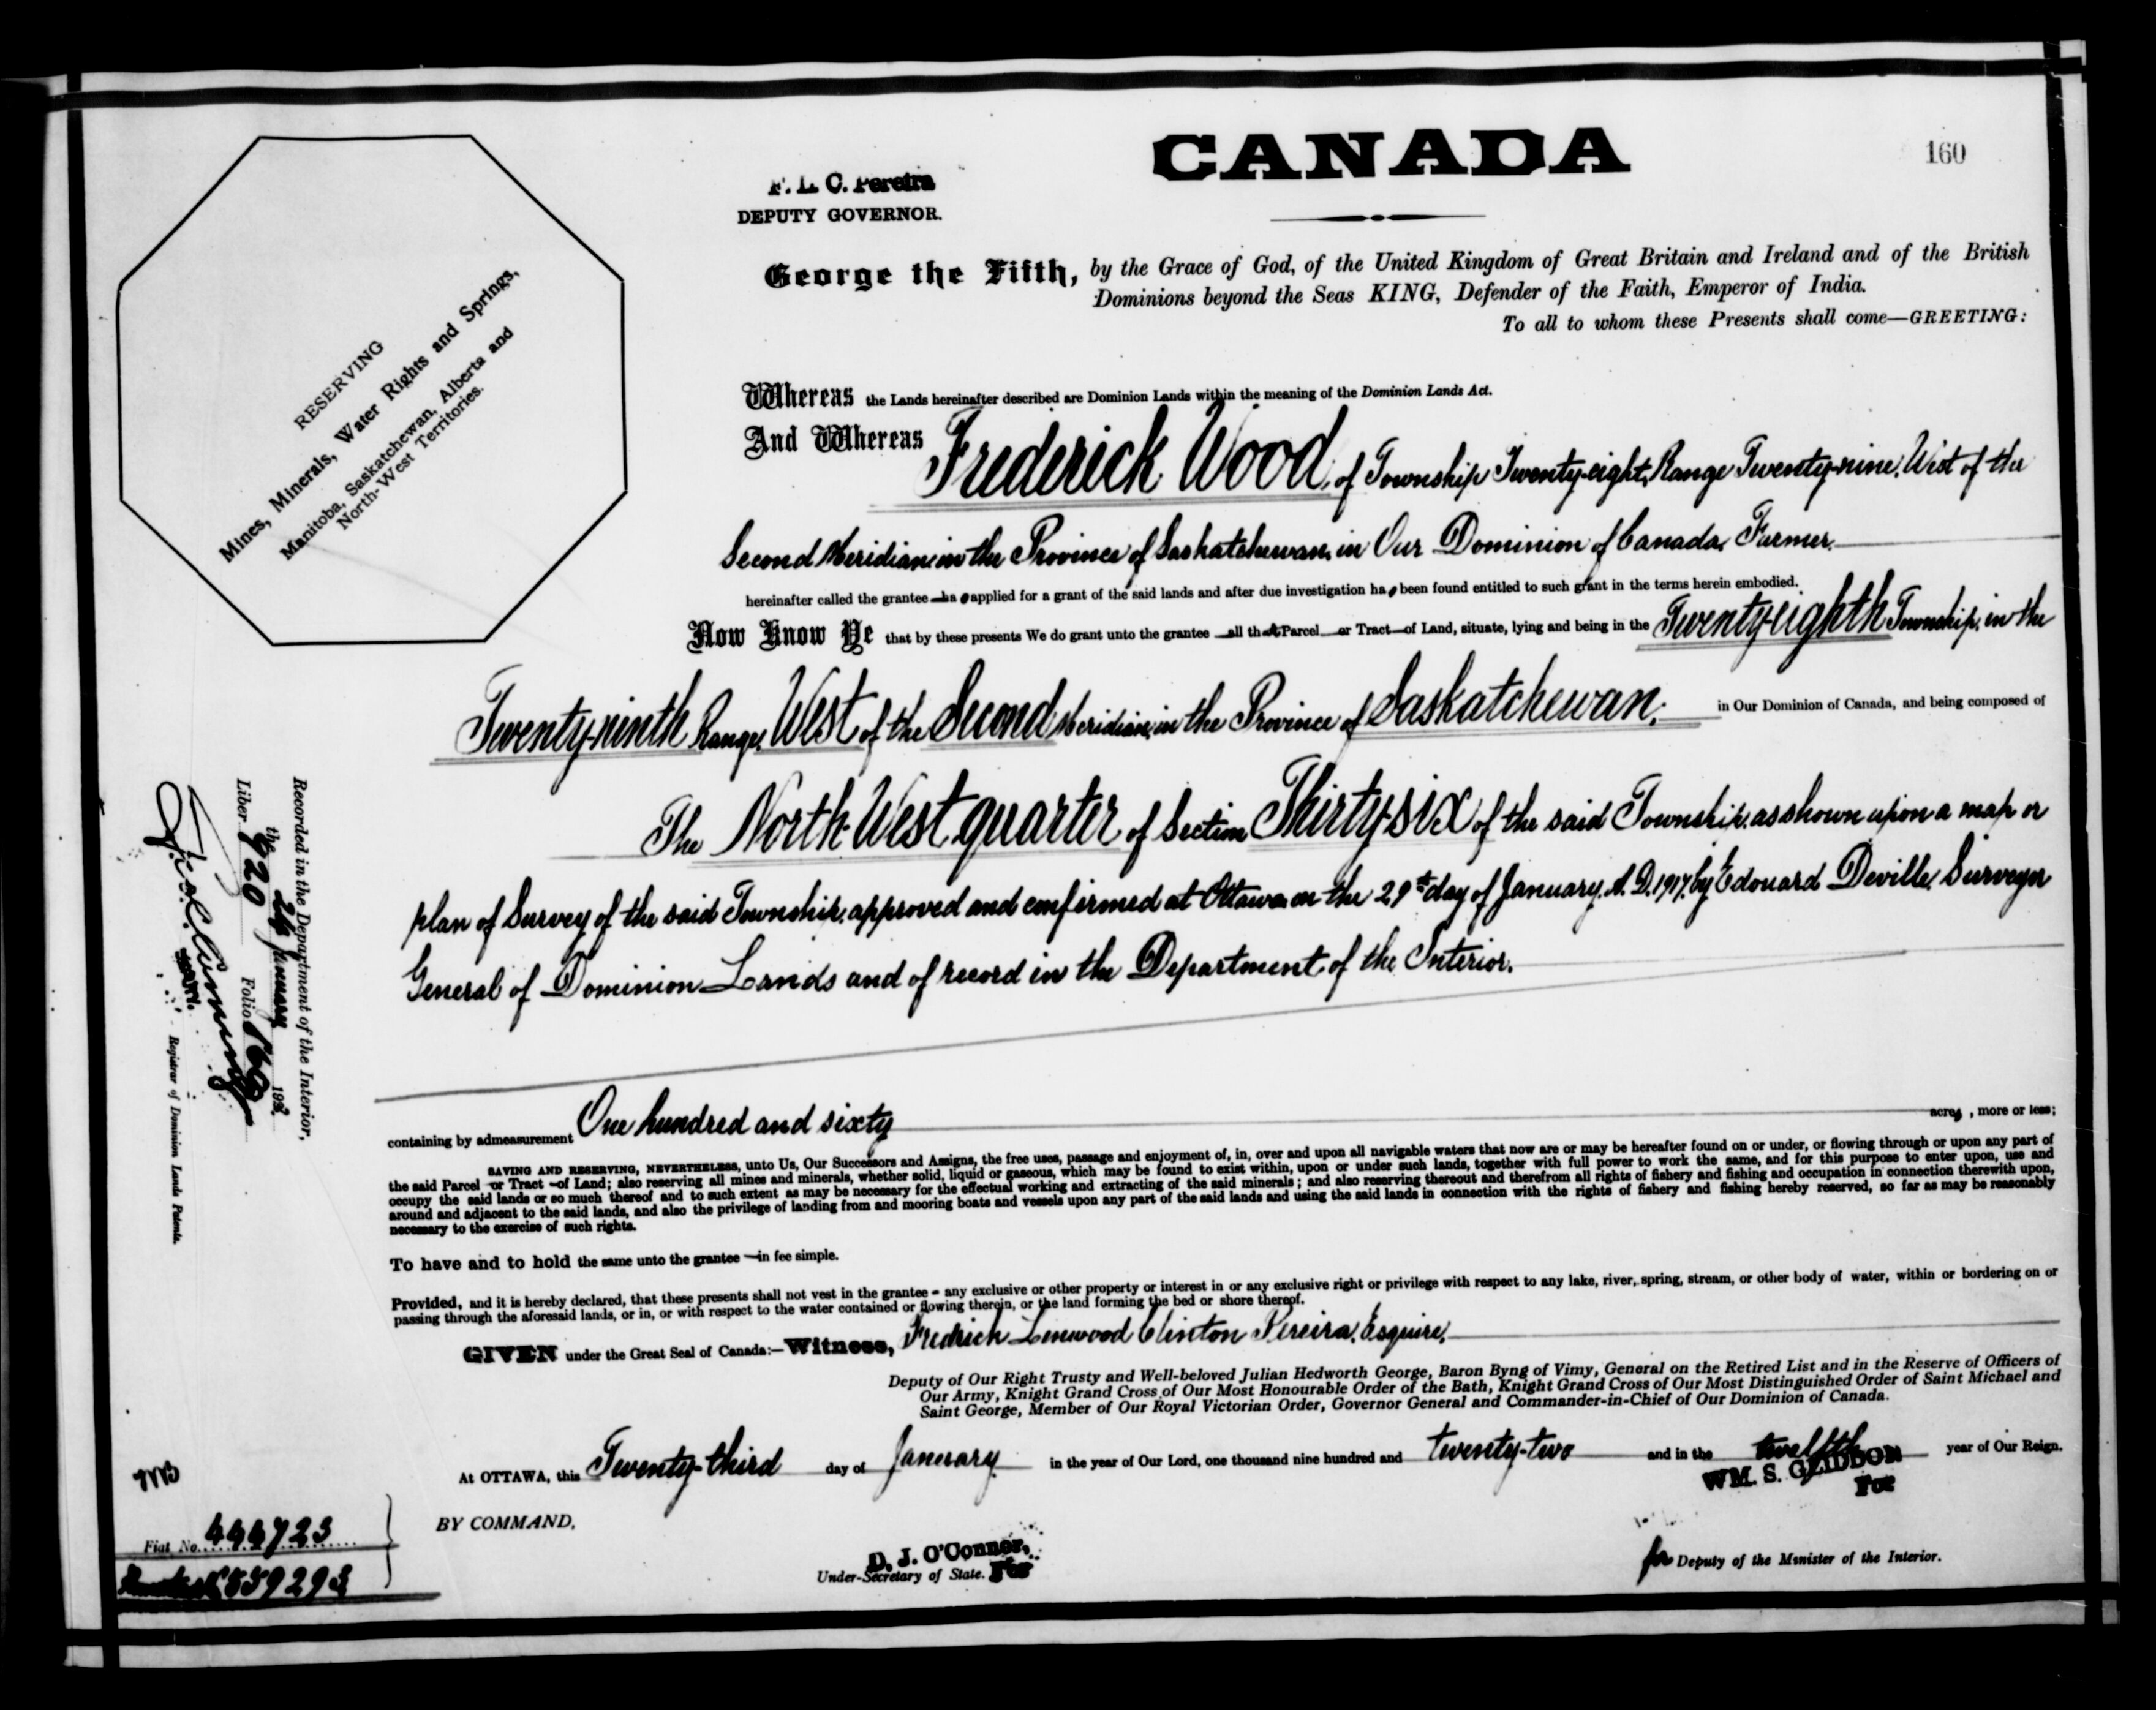 CANADA
160
F. L. C. Pereira
DEPUTY GOVERNOR.
George the Fifth, by the Grace of God, of the United Kingdom of Great Britain and Ireland and of the British
Dominions beyond the Seas KING, Defender of the Faith, Emperor of India.
To all to whom these Presents shall come—GREETING:
RESERVING
Mines, Minerals, Water Rights and Springs,
Manitoba, Saskatchewan, Alberta and
North-West Territories.
Whereas the Lands hereinafter described are Dominion Lands within the meaning of the Dominion Lands Act.
And Whereas Frederick Wood, of Township Twenty-eight, Range Twenty-nine, West of the
Second Meridian, in the Province of Saskatchewan, in Our Dominion of Canada, Farmer.
hereinafter called the grantee ha applied for a grant of the said lands and after due investigation ha been found entitled to such grant in the terms herein embodied.
Now Know Ye that by these presents We do grant unto the grantee all that Parcel or Tract of Land, situate, lying and being in the Twenty-eighth Township, in the
Twenty-ninth Range, West of the Second Meridian, in the Province of Saskatchewan, in Our Dominion of Canada, and being composed of
The North-West quarter of Section Thirty-six of the said Township, as shown upon a map or
plan of Survey of the said Township, approved and confirmed at Ottawa on the 29th day of January, A. D. 1917, by Edouard Deville, Surveyor
General of Dominion Lands and of record in the Department of the Interior.
containing by admeasurement One hundred and sixty acres, more or less;
SAVING AND RESERVING, NEVERTHELESS, unto Us, Our Successors and Assigns, the free uses, passage and enjoyment of, in, over and upon all navigable waters that now are or may be hereafter found on or under, or flowing through or upon any part of
the said Parcel or Tract of Land; also reserving all mines and minerals, whether solid, liquid or gaseous, which may be found to exist within, upon or under such lands, together with full power to work the same, and for this purpose to enter upon, use and
occupy the said lands or so much thereof and to such extent as may be necessary for the effectual working and extracting of the said minerals; and also reserving thereout and therefrom all rights of fishery and fishing and occupation in connection therewith upon,
around and adjacent to the said lands, and also the privilege of landing from and mooring boats and vessels upon any part of the said lands and using the said lands in connection with the rights of fishery and fishing hereby reserved, so far as may be reasonably
necessary to the exercise of such rights.
To have and to hold the same unto the grantee in fee simple.
Provided, and it is hereby declared, that these presents shall not vest in the grantee any exclusive or other property or interest in or any exclusive right or privilege with respect to any lake, river, spring, stream, or other body of water, within or bordering on or
passing through the aforesaid lands, or in, or with respect to the water contained or flowing therein, or the land forming the bed or shore thereof.
GIVEN under the Great Seal of Canada:—Witness, Fredrick Linwood Clinton Pereira, Esquire,
Deputy of Our Right Trusty and Well-beloved Julian Hedworth George, Baron Byng of Vimy, General on the Retired List and in the Reserve of Officers of
Our Army, Knight Grand Cross of Our Most Honourable Order of the Bath, Knight Grand Cross of Our Most Distinguished Order of Saint Michael and
Saint George, Member of Our Royal Victorian Order, Governor General and Commander-in-Chief of Our Dominion of Canada.
At OTTAWA, this Twenty-third day of January in the year of Our Lord, one thousand nine hundred and twenty-two and in the twelfth year of Our Reign.
WM. S. GLIDDON
For
BY COMMAND,
D. J. O'Connor,
Under-Secretary of State. For
for Deputy of the Minister of the Interior.
Recorded in the Department of the Interior,
the 26 January 1922
Liber 720 Folio 160
Registrar of Dominion Lands Patents.
Fiat No. 444723